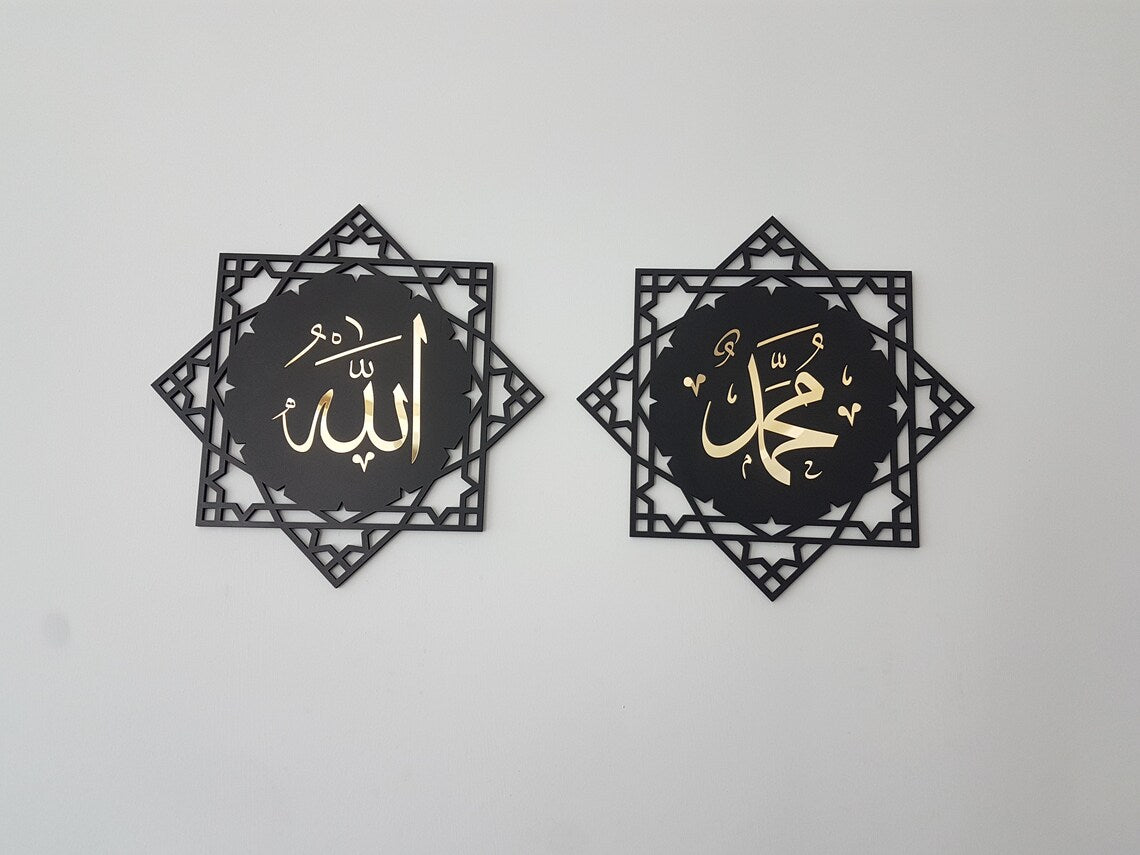 اللَّهُ
مُحَمَّدٌ